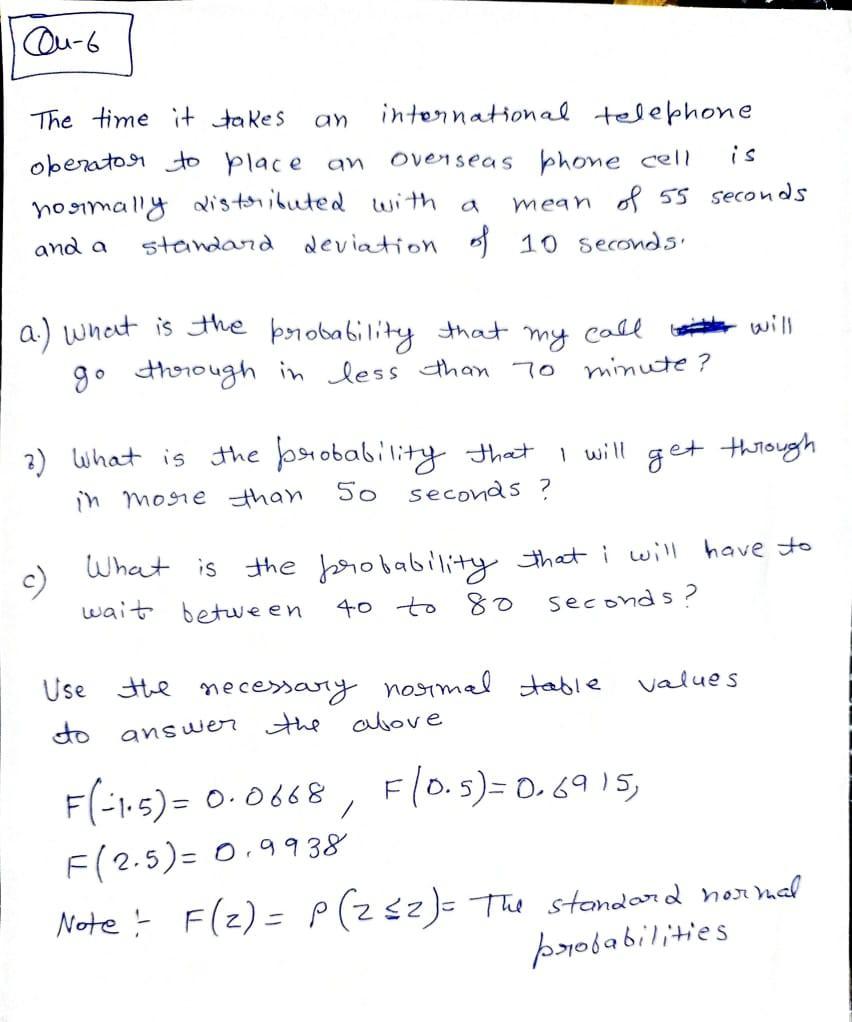 Qu-6
The time it takes an international telephone
operator to place an overseas phone cell is
normally distributed with a mean of 55 seconds
and a standard deviation of 10 seconds.
a.) What is the probability that my call will
go through in less than 70 minute?
2) What is the probability that I will get through
in more than 50 seconds?
c) What is the probability that i will have to
wait between 40 to 80 seconds?
Use the necessary normal table values
to answer the above
F(-1.5)= 0.0668, F(0.5)=0.6915,
F(2.5)= 0.9938
Note :- F(z) = P(z ≤ z)= The standard normal
probabilities